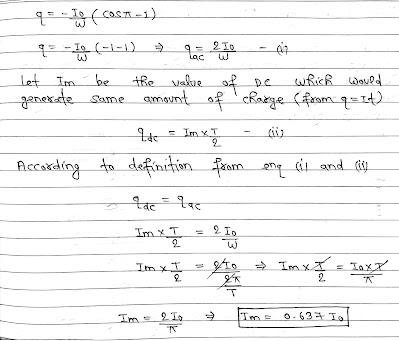 q = -I₀/ω (cosπ - 1)
q = -I₀/ω (-1-1) ⇒ q_ac = 2I₀/ω - (i)
Let Im be the value of DC which would
generate same amount of charge (from q=It)
q_dc = Im × T/2 - (ii)
According to definition from enq (i) and (ii)
q_dc = q_ac
Im × T/2 = 2I₀/ω
Im × T/2 = 2I₀/(2π/T) ⇒ Im × T/2 = I₀×T/π
Im = 2I₀/π ⇒ Im = 0.637 I₀